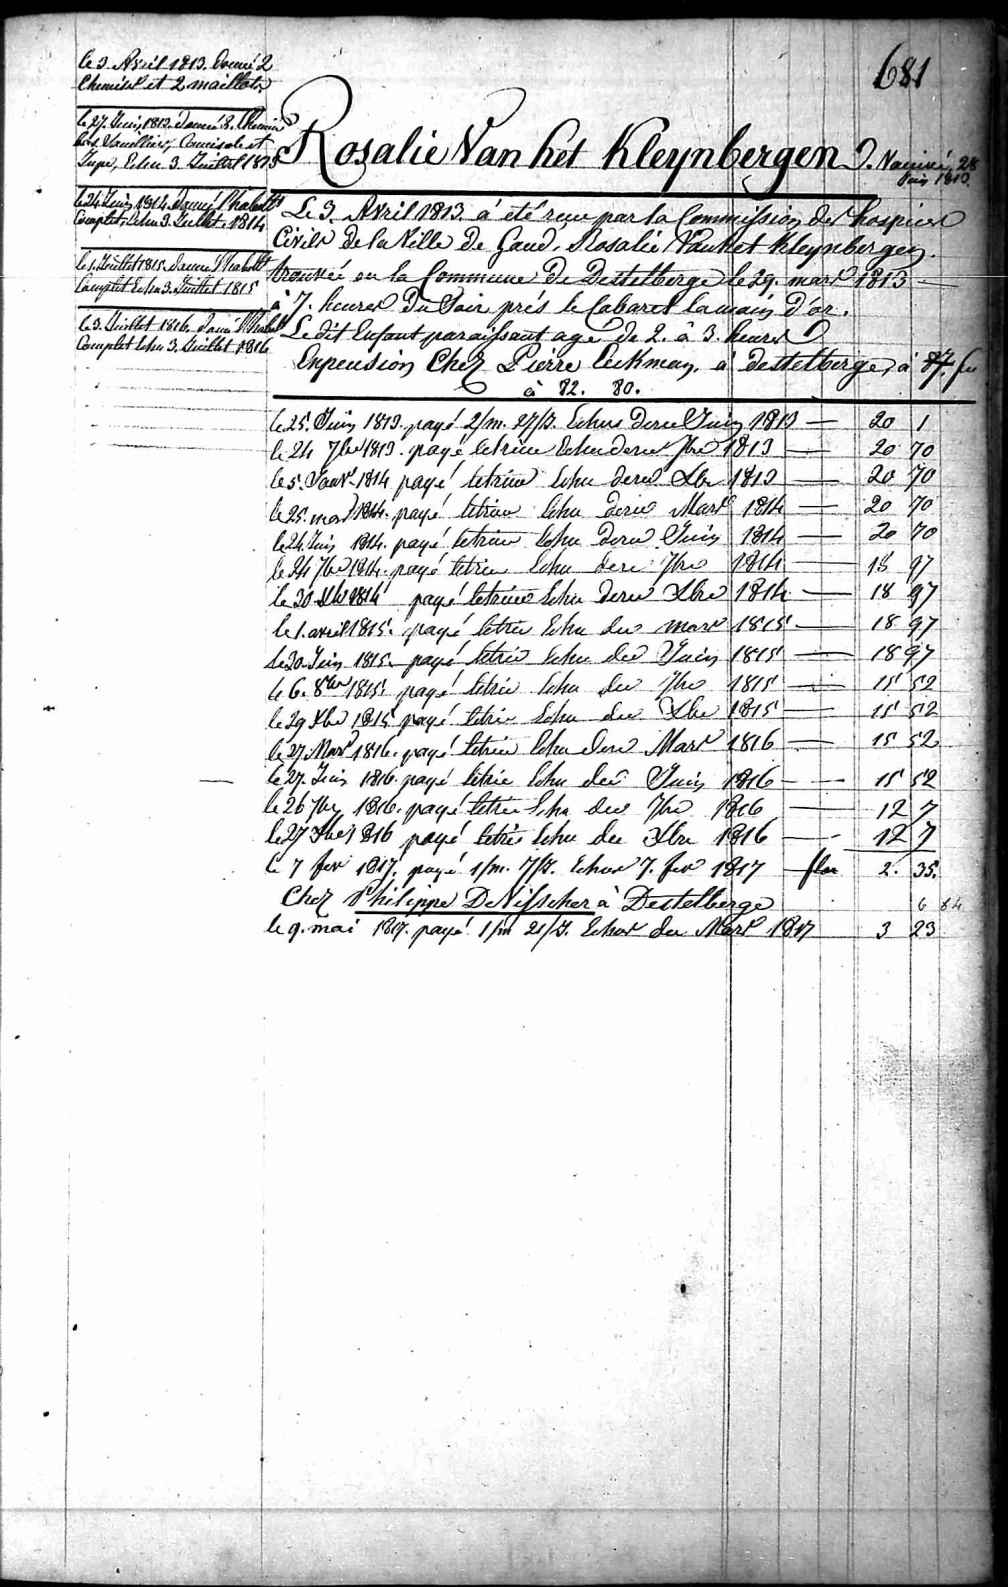 681
le 3. Avril 1813. Donné 2
Chemises et 2 maillots
le 27. Juin 1813. Donné 3. Chemises
Camisole et
Jupe, Echu 3. Juillet 1813
le 24 Juin 1814. Donné l'habillt
Complet, Echu 3. Juillet. 1814
le 1. Juillet 1815. Donné l'habillt
Complet Echu 3. Juillet 1815
le 3. Juillet 1816. Donné l'habillt
Complet Echu 3. Juillet 1816
Rosalie Van hét Kleynbergen D. Vacciné 28
Juin 1813.
Le 3. Avril 1813. a été reçu par la Commission des hospices
Civils de la Ville de Gand, Rosalie Van het Kleynbergen.
trouvée en la Commune de Destelberge le 29. mars 1813
à 7. heures du Soir prés le Cabaret la main d'or.
Le dit Enfant paraissant agé de 2. à 3. heures
Enpension Chez Pierre Eeckman, à Destelberge, à 87. fs
à 82. 80.
le 25. Juin 1813. payé 2/m. 27/J. Echus deru Juin 1813 — 20 1
le 24 7bre 1813. payé letrim Echu deru 7bre 1813 — 20 70
le 5. Janv. 1814 payé letrim Echu deru Xbre 1813 — 20 70
le 25. mars 1814. payé letrim Echu deru Mars 1814 — 20 70
le 24. Juin 1814. payé letrim Echu deru Juin 1814 — 20 70
le 24 7bre 1814. payé letrim Echu deru 7bre 1814 — 18 97
le 30 Xbre 1814 payé letrim Echu deru Xbre 1814 — 18 97
le 1. avril 1815. payé letrim Echu deu mars 1815 — 18 97
le 20. Juin 1815. payé letrim Echu deu Juin 1815 — 18 97
le 6. 8bre 1815. payé letrim Echu deu 7bre 1815 — 15 52
le 29 Xbre 1815 payé letrim Echu deu Xbre 1815 — 15 52
le 27. Mars 1816. payé letrim Echu deru Mars 1816 — 15 52
le 27. Juin 1816. payé letrim Echu deu Juin 1816 — 15 52
le 26 7bre 1816. payé letrim Echu deu 7bre 1816 — 12 7
le 27 Xbre 1816 payé letrim Echu deu Xbre 1816 — 12 7
le 7 fevr 1817. payé 1/m. 7/J. Echus 7. fevr 1817 — flor 2. 35.
Chez Philippe De Visscher à Destelberge 6 84
le 9. mai 1817. payé 1/m 21/J. Echus deu Mars 1817 3 23